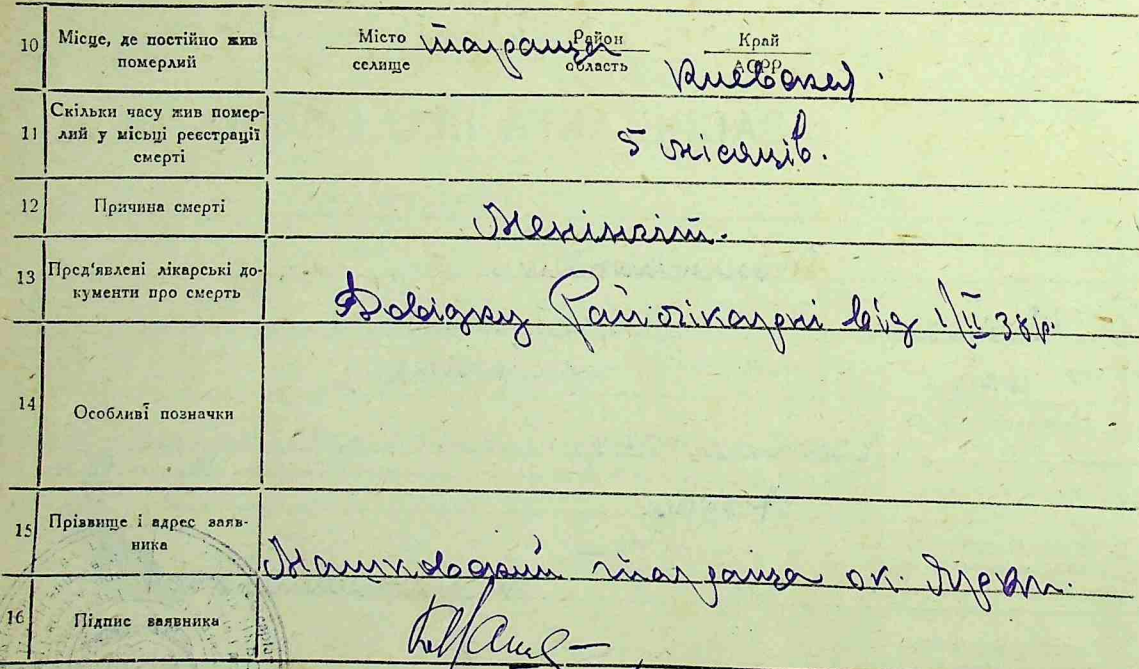 10 Місце, де постійно жив померлий Місто селище Тараща Район область Край АСРР Киевская.
11 Скільки часу жив помер-
лий у місьці реєстрації
смерті 5 місяців.
12 Причина смерті Менінгіт.
13 Пред'явлені лікарські до-
кументи про смерть Довідку Райлікарні від 1/II 38р.
14 Особливі позначки
15 Прізвище і адрес заяв-
ника Тараща
16 Підпис заявника